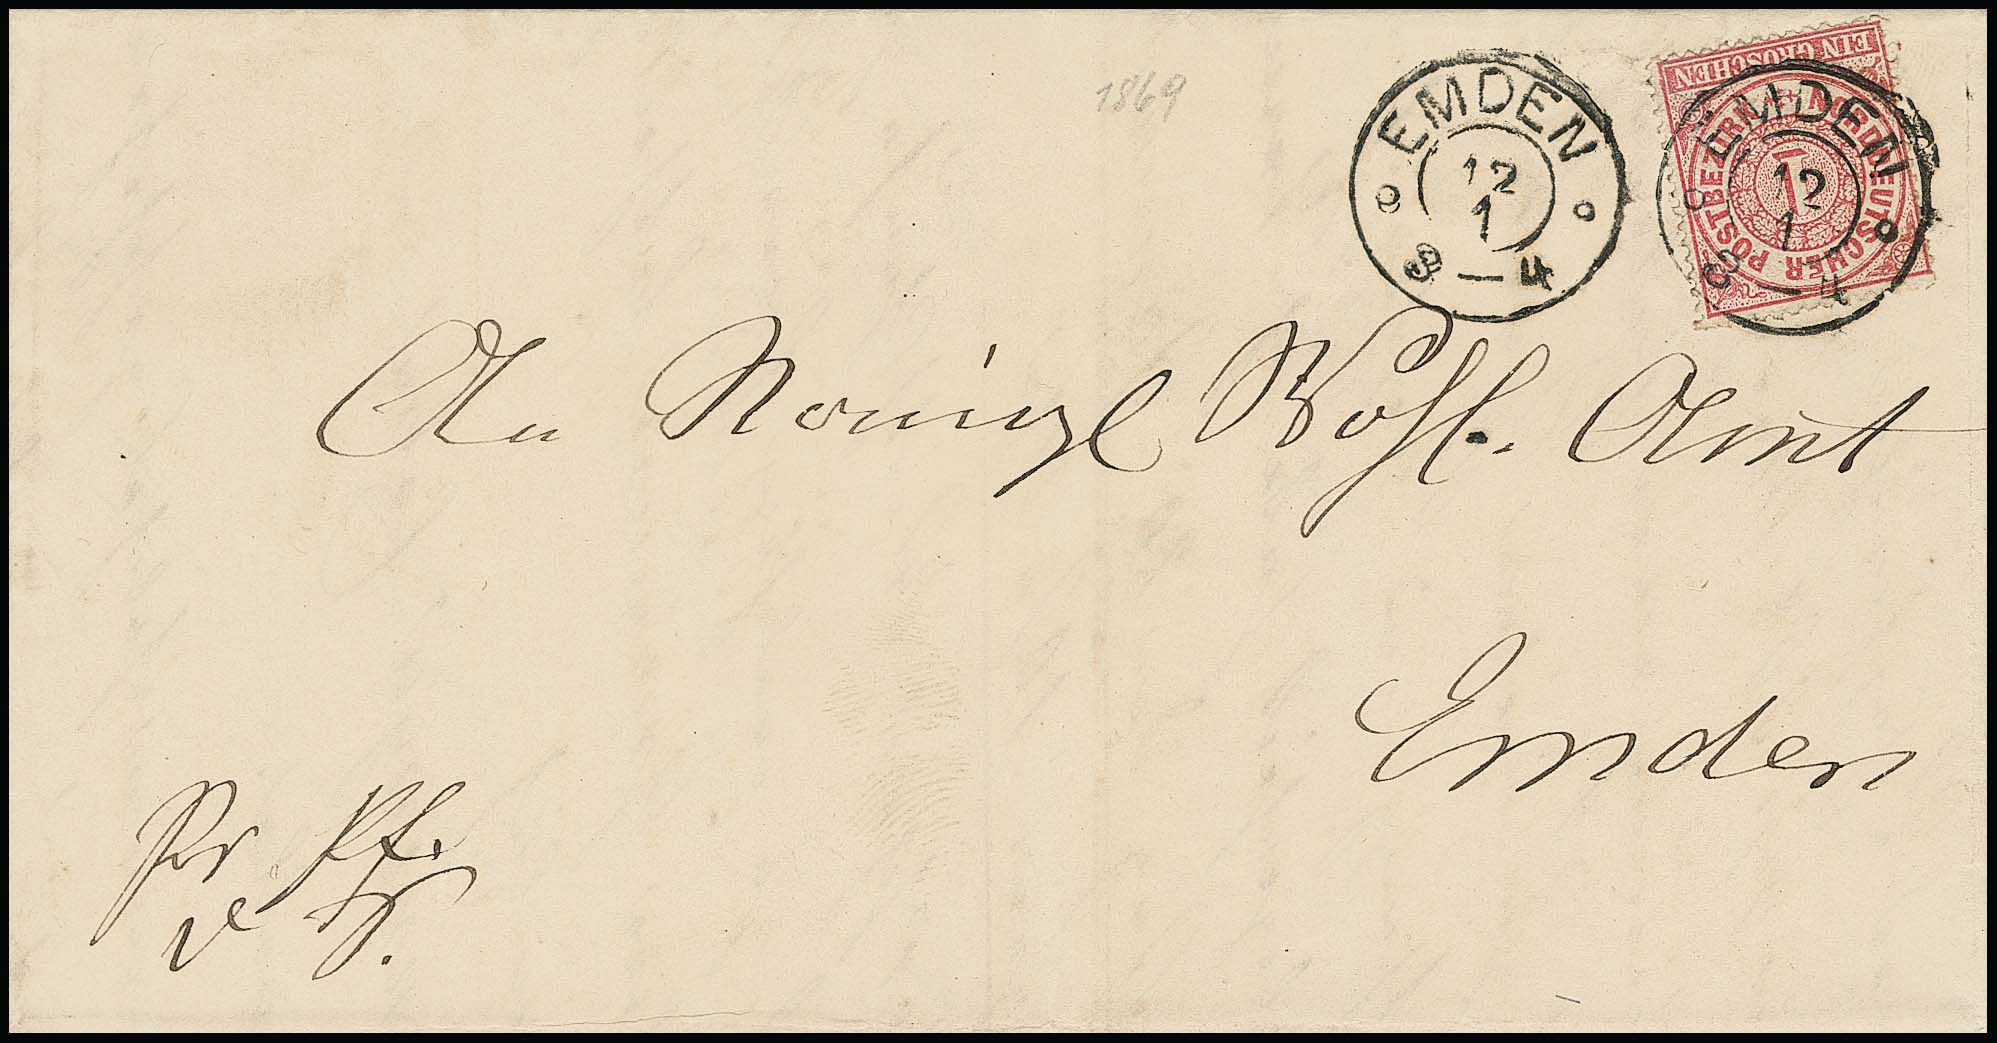 1869
EMDEN
12
1
3 — 4
EIN GROSCHEN
NORDDEUTSCHER POSTBEZIRK
1
EMDEN
12
1
3 — 4
An Königl Wohl. Amt
Emden